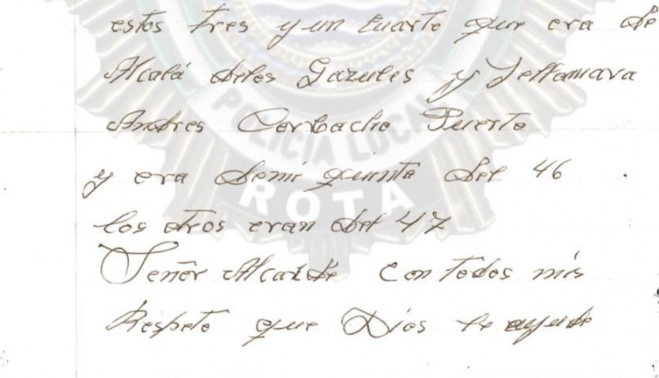 estos tres y un cuarto que era de
Alcalá delos Gazules y sellamava
Andres Corbacho Puerto
y era demi quinta del 46
los otros eran del 47
Señor Alcalde con todos mis
Respeto que Dios le ayude
POLICIA LOCAL
ROTA